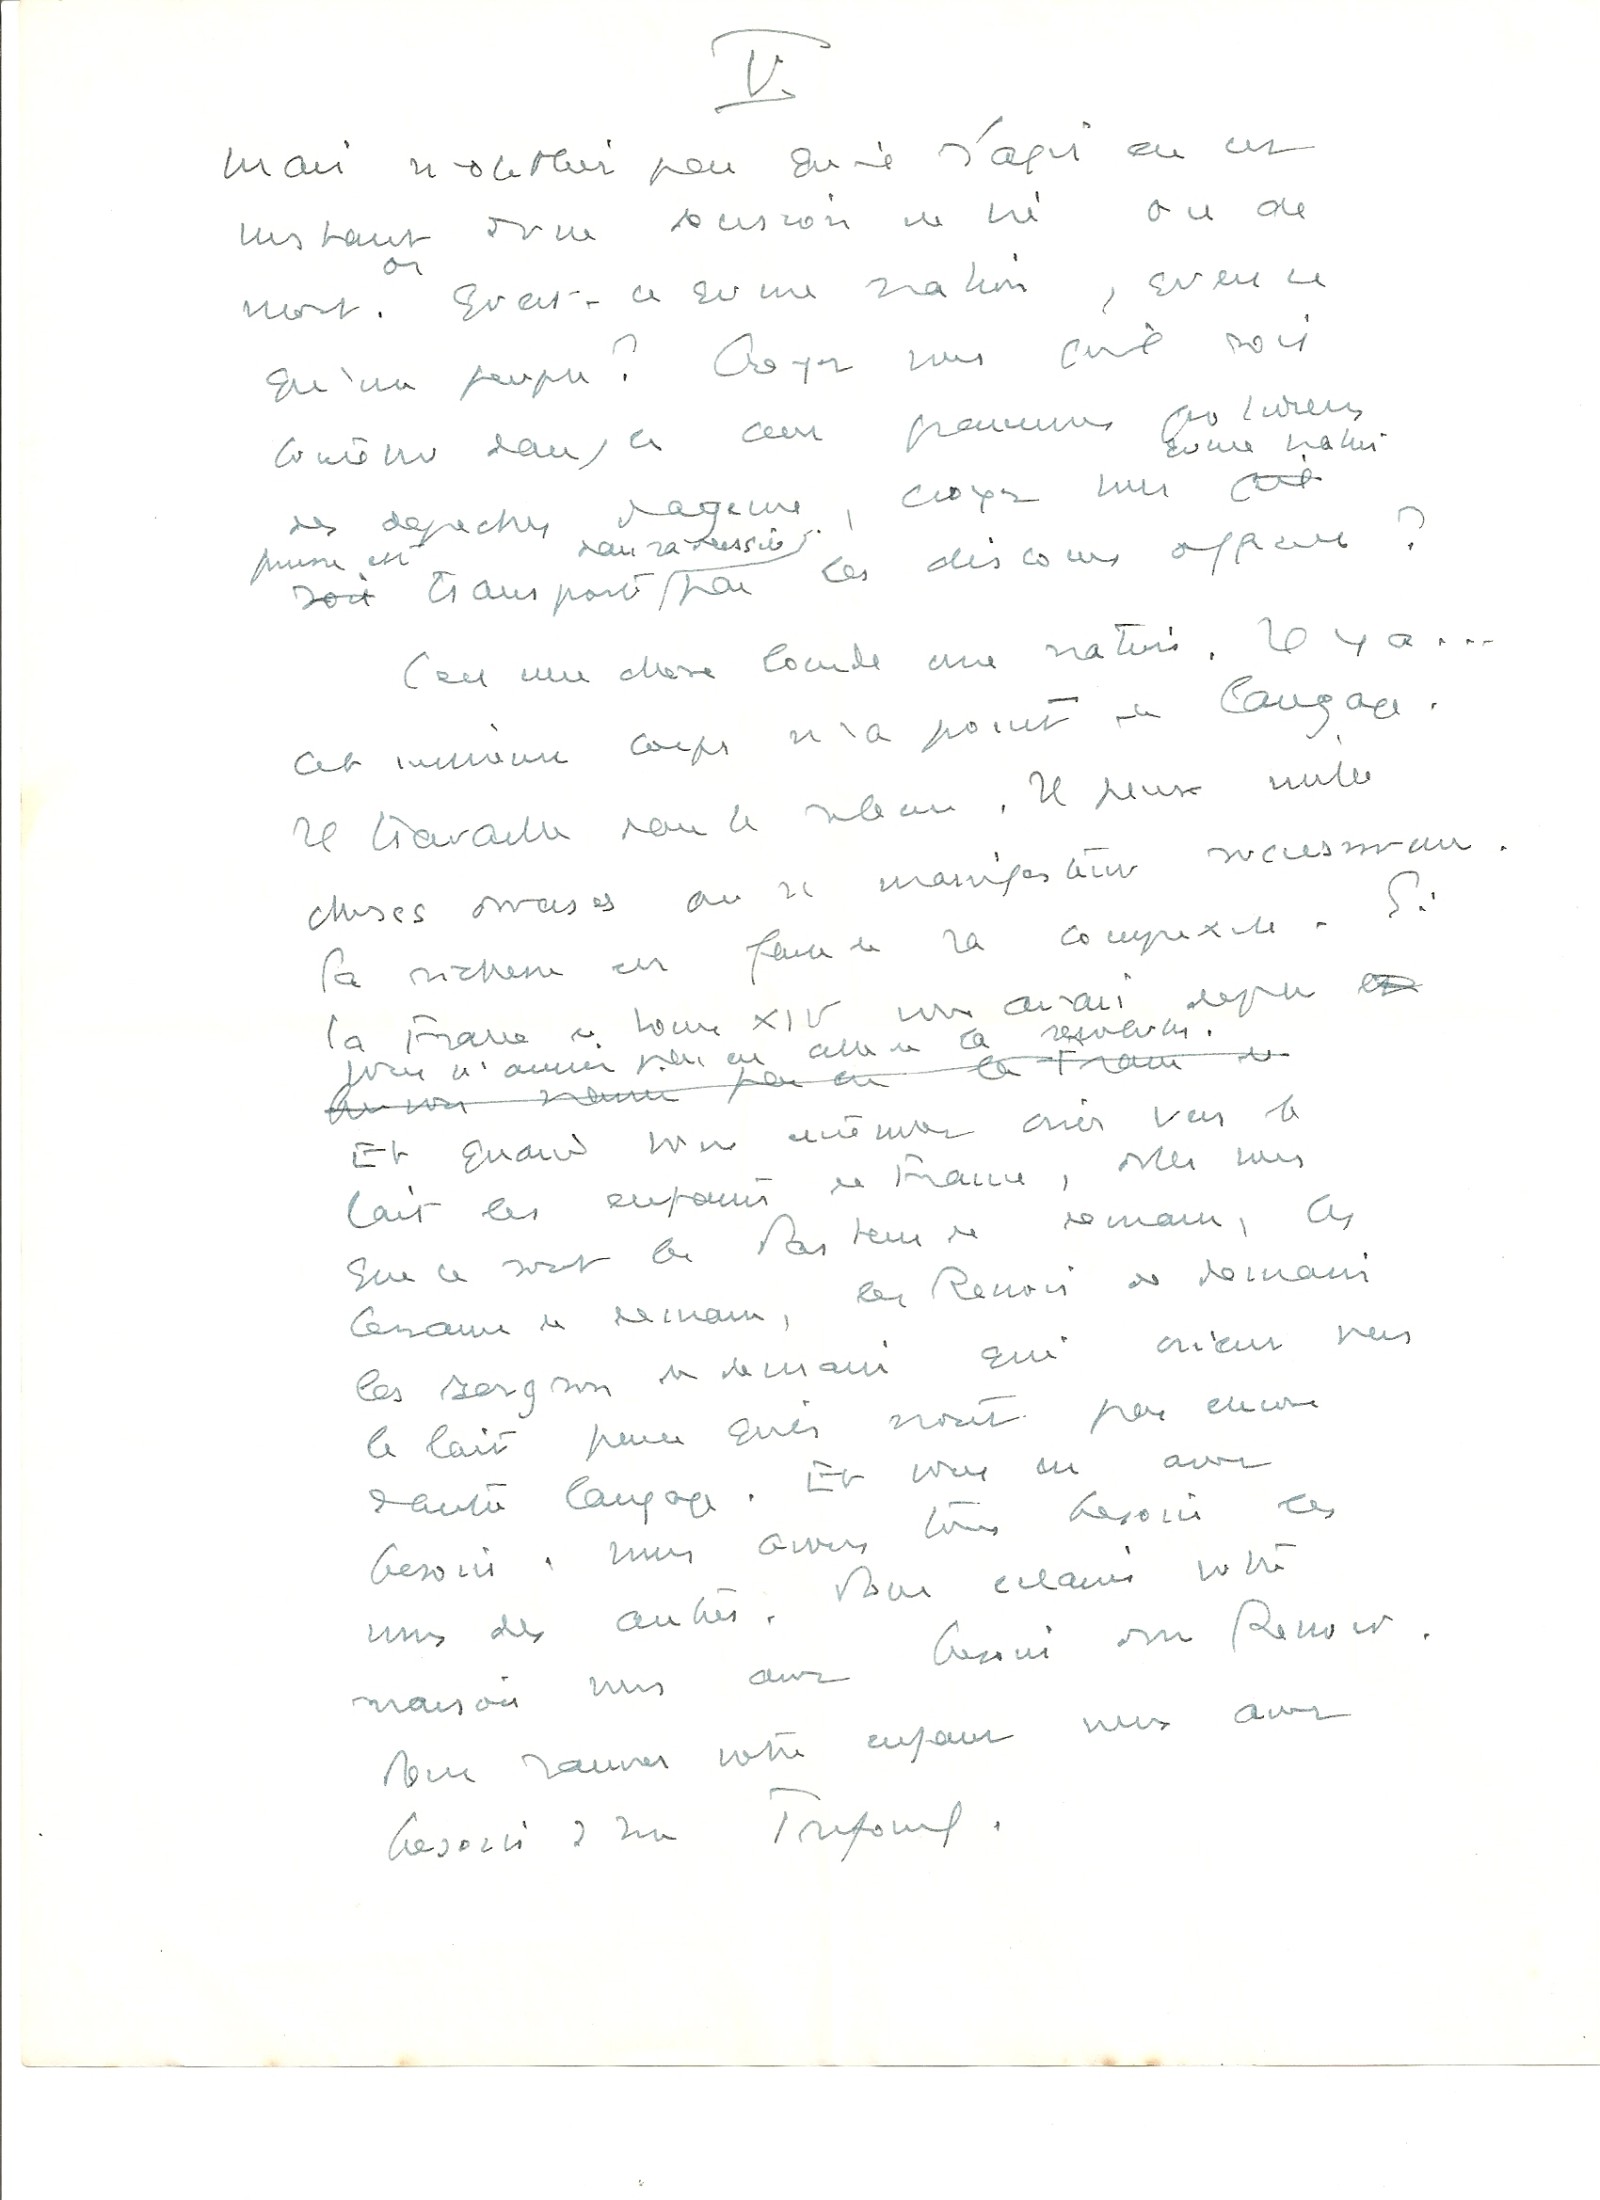 V.
Mais n'oubliez pas qu'il s'agit en cet
instant d'une décision de vie ou de
mort. or Qu'est-ce qu'une nation, qu'est ce
qu'un peuple? Croyez vous qu'il soit
contenu dans les
des dépêches d'agence, croyez vous qu'une nation
puisse être transporté dans sa par les discours officiels?
C'est une chose lourde une nation. Il y a...
cet immense corps n'a point de langage.
Il travaille dans le silence. Il peut mille
choses diverses ou se manifester successivement.
Sa richesse est faite de sa complexité. Si
la France de Louis XIV vous avait
vous n'auriez rien su de la révolution.
pas la France de
Et quand vous entendez crier vers le
lait les enfants de France, dites vous
que ce sont les Pasteur de demain, les
Cézanne de demain, les Renoir de demain
les Bergson de demain qui crient vers
le lait parce qu'ils n'ont pas encore
d'autre langage. Et vous en avez
besoin. nous avons tous besoin les
uns des autres. Pour éclairer votre
maison vous avez besoin d'un Renoir.
Pour sauver votre enfant vous avez
besoin d'un